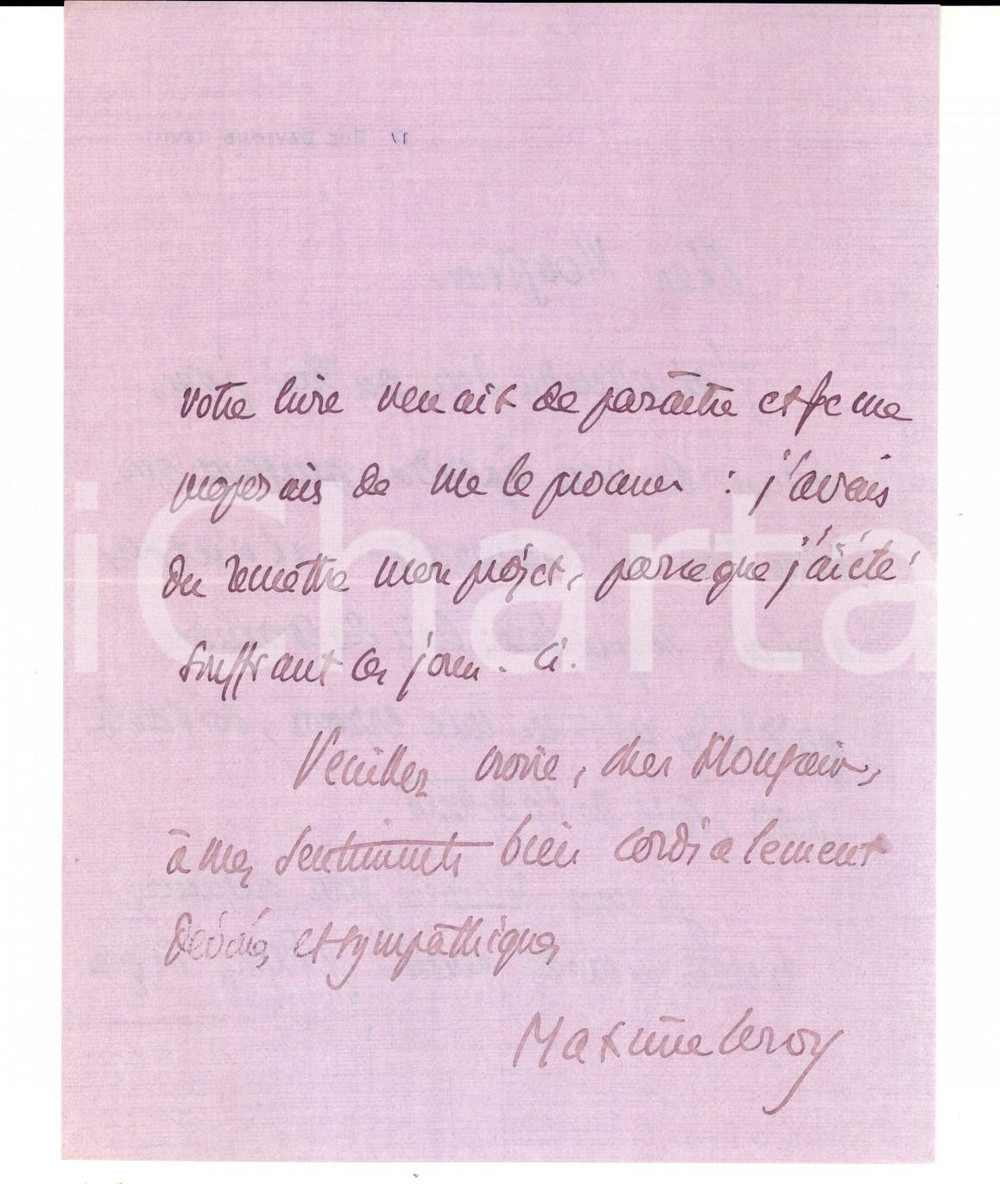 votre livre venait de paraître et je me
proposais de me le procurer : j'avais
du remettre mon projet, parce que j'ai été
souffrant ces jours-ci.
Veuillez croire, cher Monsieur,
à mes sentiments bien cordialement
dévoués et sympathiques
Maxime Leroy
iCharta